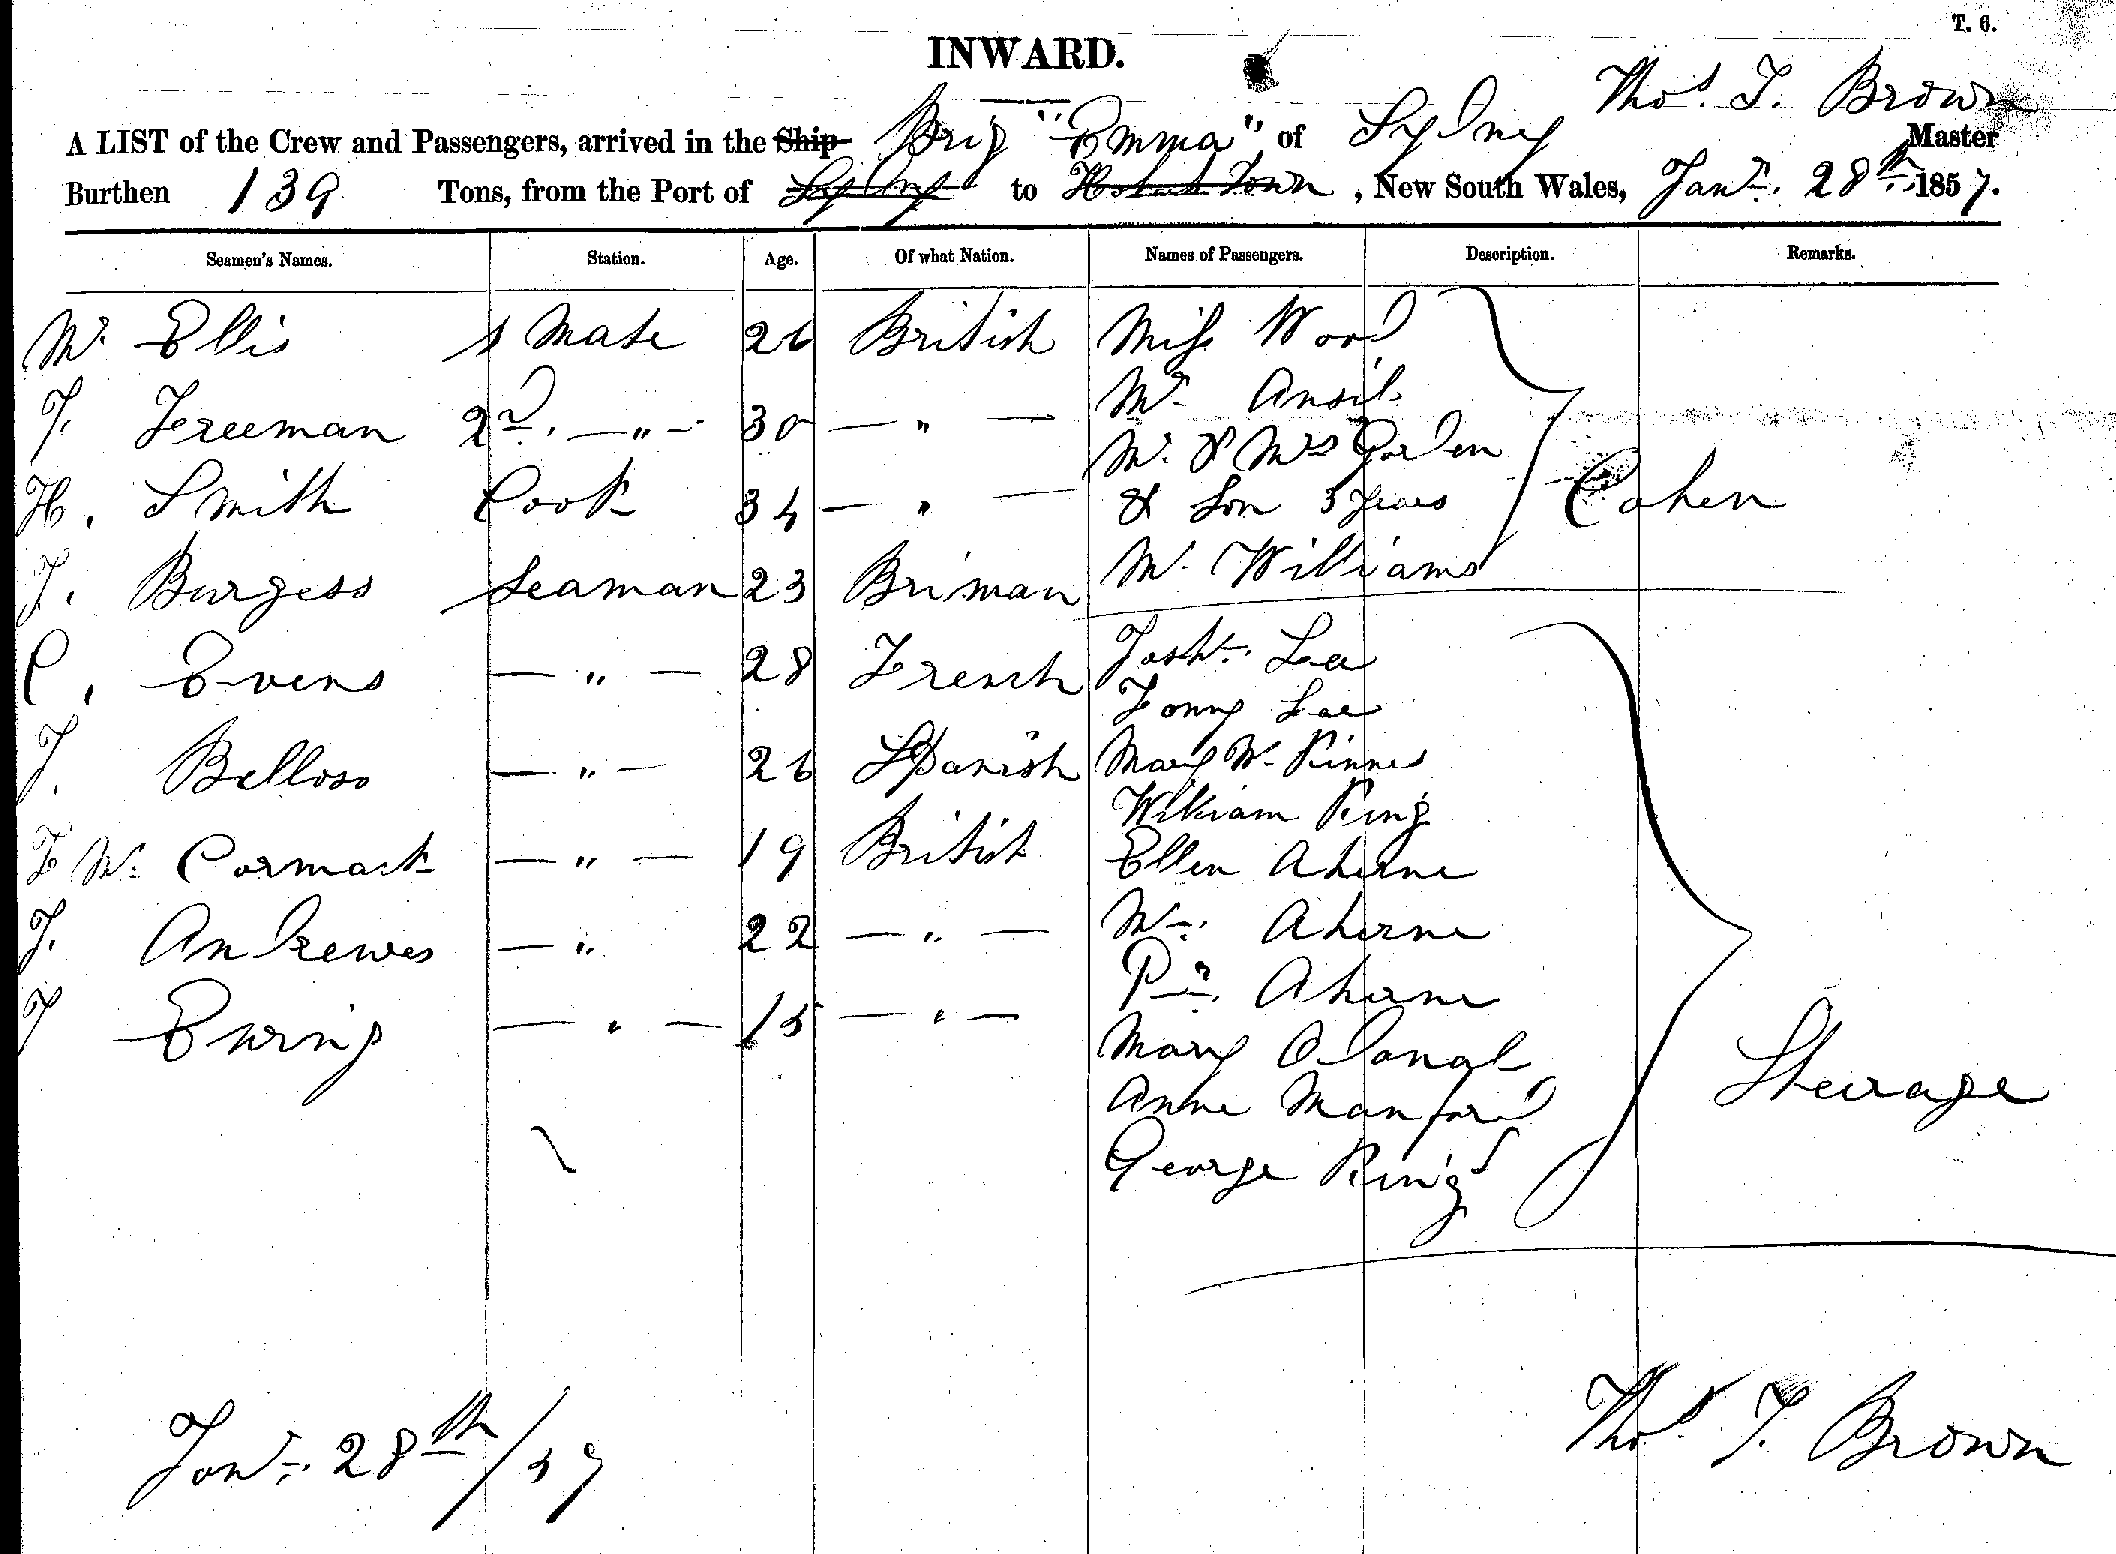 T. 6.
INWARD.
Thos. T. Brown
A LIST of the Crew and Passengers, arrived in the Ship Brig "Emma" of Sydney Master
Burthen 139 Tons, from the Port of Sydney to Hobart Town, New South Wales, Jany. 28th 1857.
Seamen's Names. Station. Age. Of what Nation. Names of Passengers. Description. Remarks.
Mr Ellis 1 Mate 26 British Miss Wood
T. Freeman 2nd. — " — 30 — " — Mr Ansil
Mr & Mrs Gorden
H. Smith Cook 34 — " — & Son 3 years Cahen
J. Burgess Seaman 23 Briman Mr. Williams
C. Evens — " — 28 French Josh. Lee
Fonny Lee
J. Belloso — " — 26 Spanish Mary Mc Kinnes
William King
F Mc Cormack — " — 19 British Ellen Aherne
J. Andrewes — " 22 — " — Wm. Aherne
Aherne
T Ewing — " — 15 — " — Mary Odonal
Steurage
Anne Manford
George King
Jany. 28th/57
Thos T. Brown